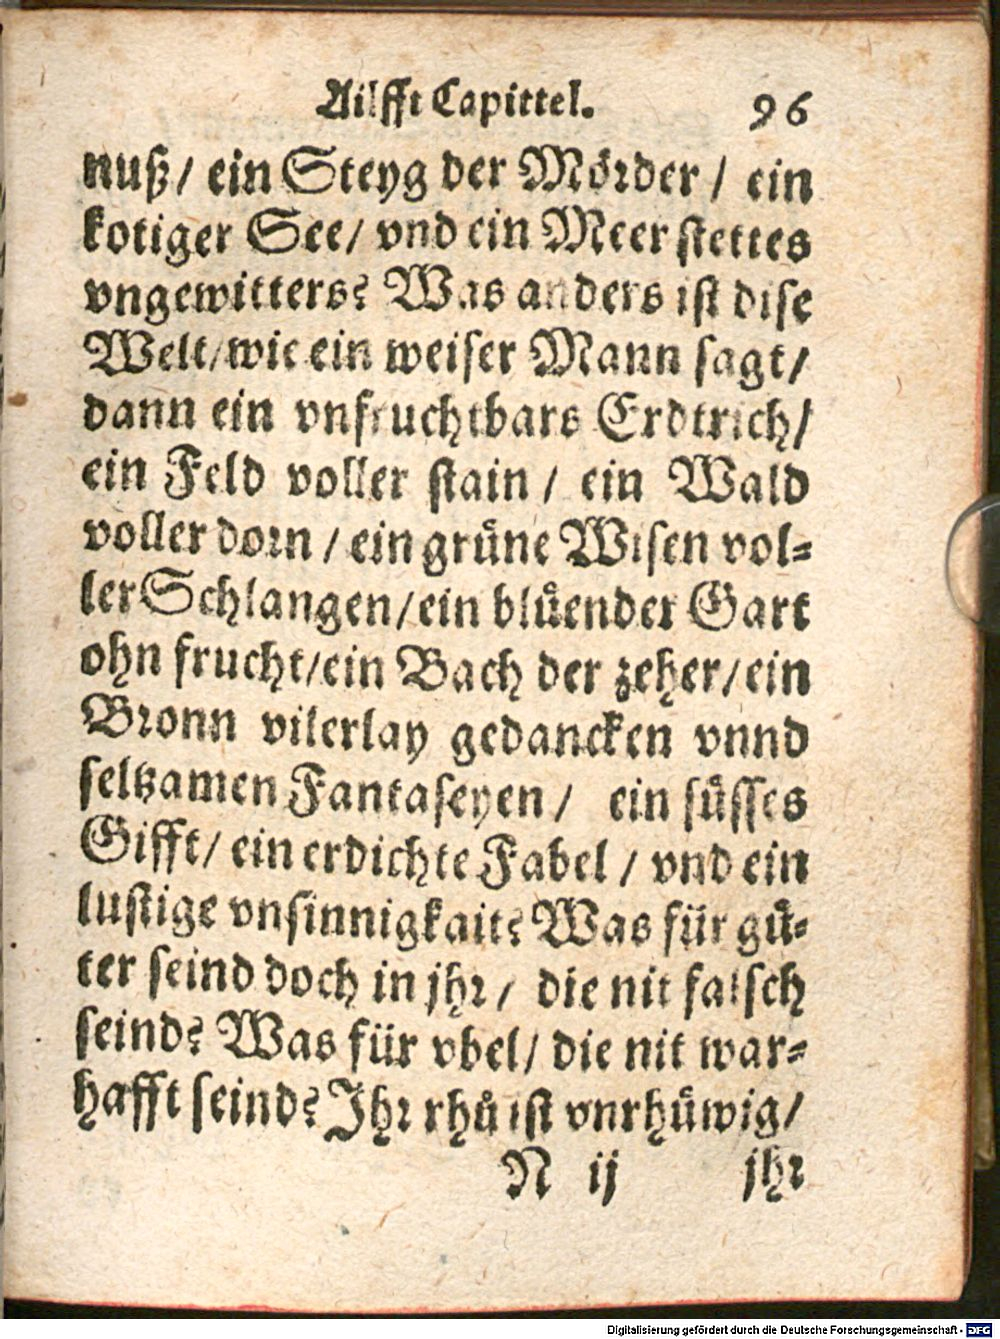 Ailfft Capittel. 96
nuß/ ein Steyg der Mörder / ein
kotiger See/ vnd ein Meer stettes
vngewitters? Was anders ist dise
Welt/wie ein weiser Mann sagt/
dann ein vnfruchtbars Erdtrich/
ein Feld voller stain / ein Wald
voller dorn / ein grüne Wisen vol-
ler Schlangen/ein blüender Gart
ohn frucht/ein Bach der zeher/ein
Bronn vilerlay gedancken vnnd
seltzamen Fantaseyen / ein süsses
Gifft/ ein erdichte Fabel / vnd ein
lustige vnsinnigkait? Was für gü-
ter seind doch in jhr / die nit falsch
seind? Was für vbel/ die nit war-
hafft seind? Ihr rhů ist vnrhüwig/
N ij jhr
Digitalisierung gefördert durch die Deutsche Forschungsgemeinschaft - DFG